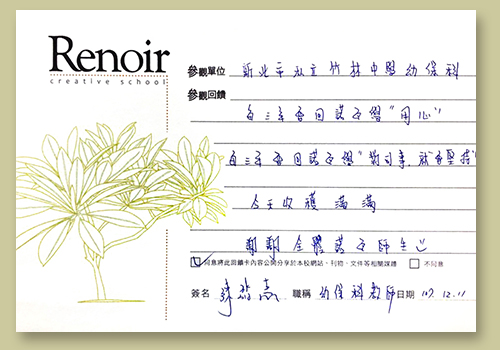 Renoir
creative school
參觀單位 新北市私立竹林中學幼保科
參觀回饋
自三年會回諾子學"用心"
自三年會回諾子學"對的事,就會堅持"
今天收穫滿滿
謝謝全體諾子師生
同意將此回饋卡內容公開分享於本校網站、刊物、文件等相關媒體 不同意
簽名 職稱 幼保科教師 日期 107.12.11